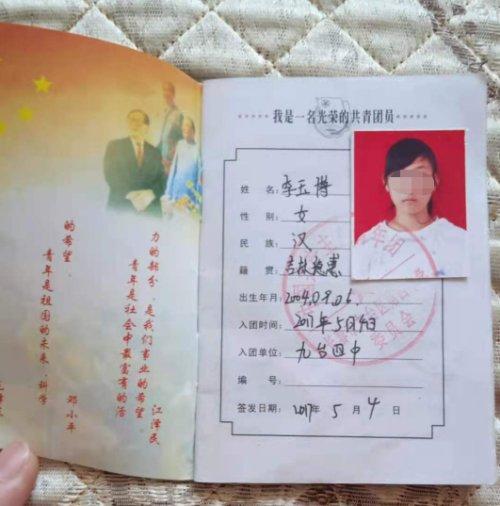 我是一名光荣的共青团员
姓 名: 李玉博
性 别: 女
民 族: 汉
籍 贯: 吉林德惠
出生年月: 2004.09.06.
入团时间: 2017年5月4日
入团单位: 九台四中
编 号:
签发日期: 2017年 5 月 4 日
力的部分,是我们事业的希望。
青年是社会中最富有的活
江泽民
的希望。
青年是祖国的未来,科学
邓小平